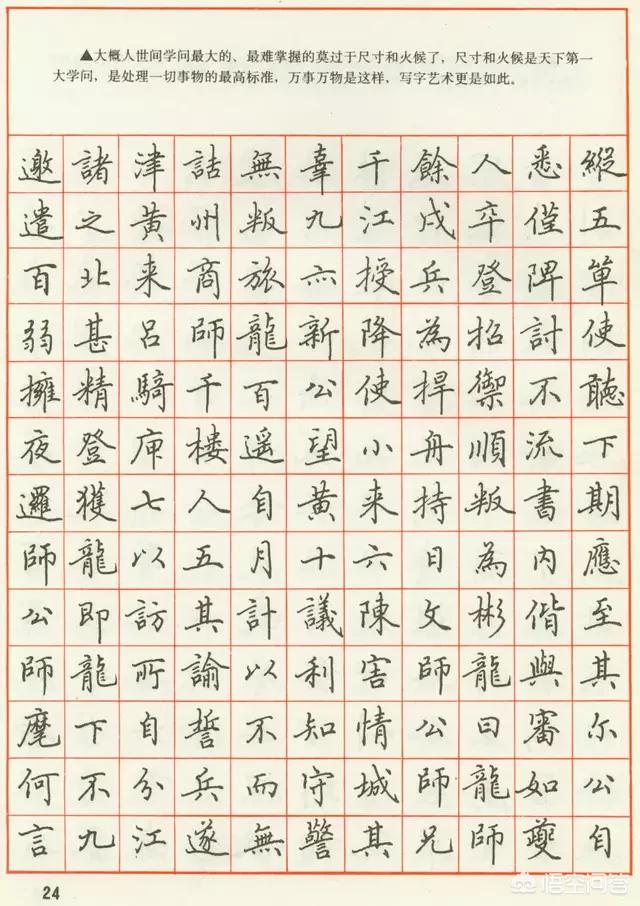 ▲大概人世间学问最大的、最难掌握的莫过于尺寸和火候了，尺寸和火候是天下第一
大学问，是处理一切事物的最高标准，万事万物是这样，写字艺术更是如此。
邀諸津詰無辜千餘人悉縱
遣之黃州叛九江戍卒僅五
百北来商旅亦授兵登陴單
弱甚呂師龍新降為招討使
擁精騎千百公使捍禦不聽
夜登庾樓遥望小舟順流下
邏獲七人自黃来持叛書期
師龍以五月十六日為內應
公即訪其計議陳文彬偕至
師龍所諭以利害師龍與其
麾下自誓不知情公曰審尔
何不分兵而守城師龍如公
言九江遂無警其兄師夔自
24
悟空问答